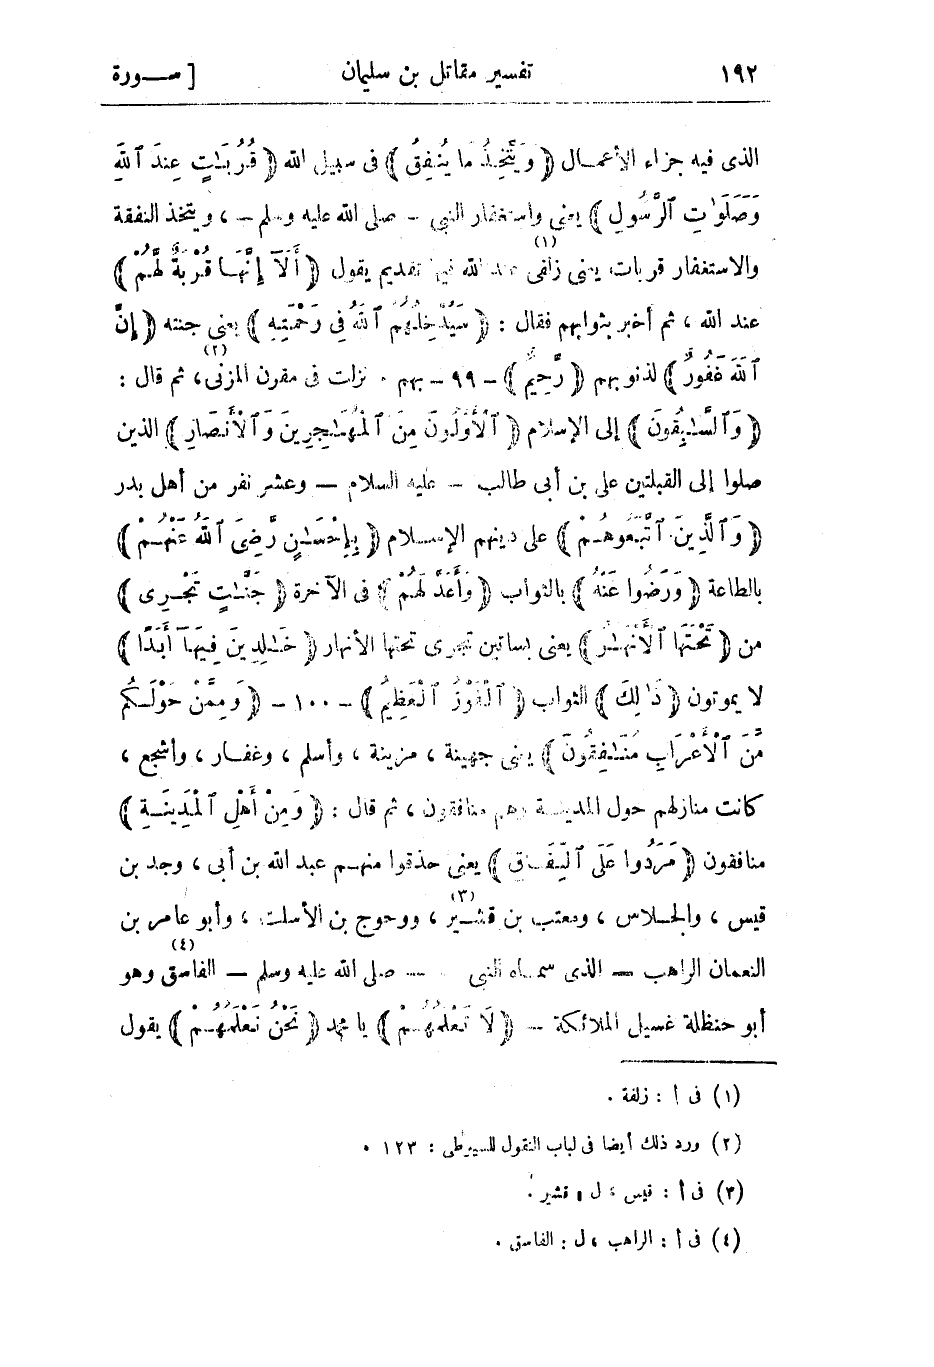 ١٩٢ تفسير مقاتل بن سليمان [ ســورة
الذى فيه جزاء الأعمـال ﴿ وَيَتَّخِذُ مَا يُنفِقُ ﴾ فى سبيل الله ﴿ قُرُبَـٰتٍ عِندَ ٱللَّهِ
وَصَلَوَٰتِ ٱلرَّسُولِ ﴾ يعنى واستغفار النبى – صلى الله عليه وسلم – ، ويتخذ النفقة
والاستغفار قربات يعنى زلفى (١) عند الله فيها تقديم يقول ﴿ أَلَآ إِنَّهَا قُرْبَةٌ لَّهُمْ ﴾
عند الله ، ثم أخبر بثوابهم فقال : ﴿ سَيُدْخِلُهُمُ ٱللَّهُ فِى رَحْمَتِهِ ﴾ يعنى جنته ﴿ إِنَّ
ٱللَّهَ غَفُورٌ ﴾ لذنوبهم ﴿ رَّحِيمٌ ﴾ – ٩٩ – بهم . نزلت فى مقرن المزنى (٢) ، ثم قال :
﴿ وَٱلسَّـٰبِقُونَ ﴾ إلى الإسلام ﴿ ٱلْأَوَّلُونَ مِنَ ٱلْمُهَـٰجِرِينَ وَٱلْأَنصَارِ ﴾ الذين
صلوا إلى القبلتين على بن أبى طالب – عليه السلام – وعشر نفر من أهل بدر
﴿ وَٱلَّذِينَ ٱتَّبَعُوهُـمْ ﴾ على دينهم الإسـلام ﴿ بِإِحْسَـٰنٍ رَّضِىَ ٱللَّهُ عَنْهُـمْ ﴾
بالطاعة ﴿ وَرَضُوا عَنْهُ ﴾ بالثواب ﴿ وَأَعَدَّ لَهُمْ ﴾ فى الآخرة ﴿ جَنَّـٰتٍ تَجْـرِى ﴾
من ﴿ تَحْتَهَا ٱلْأَنْهَـٰرُ ﴾ يعنى بساتين تجرى تحتها الأنهار ﴿ خَـٰلِدِينَ فِيهَآ أَبَدًا ﴾
لا يموتون ﴿ ذَٰلِكَ ﴾ الثواب ﴿ ٱلْفَوْزُ ٱلْعَظِيمُ ﴾ – ١٠٠ – ﴿ وَمِمَّنْ حَوْلَـكُم
مِّنَ ٱلْأَعْرَابِ مُنَـٰفِقُونَ ﴾ يعنى جهينة ، مزينة ، وأسلم ، وغفـار ، وأشجع ،
كانت منازلهم حول المدينـة وهم منافقون ، ثم قال : ﴿ وَمِنْ أَهْلِ ٱلْمَدِينَـةِ ﴾
منافقون ﴿ مَرَدُوا عَلَى ٱلنِّفَـاقِ ﴾ يعنى حذقوا منهـم عبد الله بن أبى ، وجد بن
قيس ، والجـلاس ، ومعتب بن قشـير (٣) ، ووحوج بن الأسلت ، وأبو عامر بن
النعمان الراهب – الذى سمـاه النبى – صلى الله عليه وسلم – الفاسق (٤) وهو
أبو حنظلة غسيل الملائكة – ﴿ لَا تَعْلَمُهُـمْ ﴾ يا محمد ﴿ نَحْنُ نَعْلَمُهُـمْ ﴾ يقول
(١) فى أ : زلفة .
(٢) ورد ذلك أيضا فى لباب النقول للسيوطى : ١٢٣ .
(٣) فى أ : قيس ، ل : قشير .
(٤) فى أ : الراهب ، ل : الفاسق .